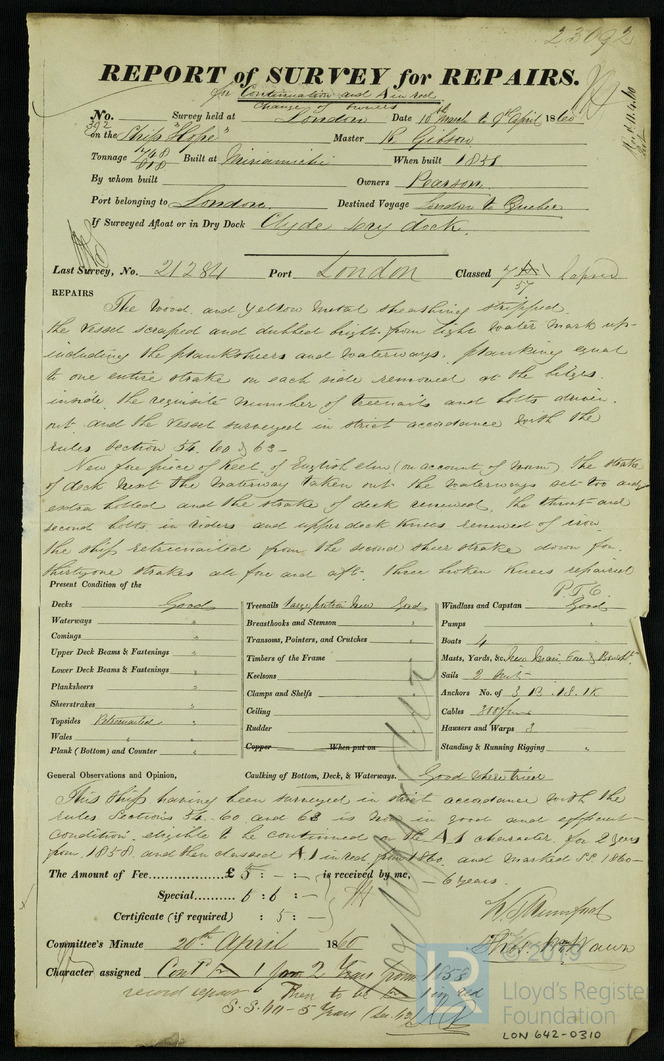 23092
REPORT of SURVEY for REPAIRS.
for Continuation and A in red
Change of Owners
No. 392 Survey held at London Date 10th March to 9th April 1860
on the Ship "Hope" Master R. Gibson
Tonnage 748 Built at Miramichi When built 1851
By whom built Owners Pearson
Port belonging to London Destined Voyage London to Quebec
If Surveyed Afloat or in Dry Dock Clyde dry dock.
Last Survey, No. 21284 Port London Classed 7 A1 57 lapsed
REPAIRS
The wood and yellow metal sheathing stripped.
the vessel scraped and dubbed bright from light water mark up
including the planksheers and waterways. planking equal
to one entire strake on each side removed at the bilges.
inside the requisite number of treenails and bolts driven
out and the vessel surveyed in strict accordance with the
rules section 54. 60 & 63 -
New fore piece of keel of English elm (on account of worm) The strake
of deck next the waterway taken out the waterways set too and
extra bolted and the strake of deck renewed, the throat and
second bolts in riders and upper deck knees renewed of iron
the ship retreenailed from the second sheer strake down for
thirtyone strakes all fore and aft. three broken knees repaired
P.T.O.
Present Condition of the
Decks Good
Waterways "
Comings "
Upper Deck Beams & Fastenings "
Lower Deck Beams & Fastenings "
Planksheers "
Sheerstrakes "
Topsides Retreenailed "
Wales " "
Plank (Bottom) and Counter "
Treenails large portion New Good
Breasthooks and Stemson "
Transoms, Pointers, and Crutches "
Timbers of the Frame "
Keelsons "
Clamps and Shelfs "
Ceiling "
Rudder "
Copper When put on
Windlass and Capstan Good
Pumps "
Boats 4 "
Masts, Yards, &c. New Main Fore & Bowspt
Sails 2 Suits
Anchors No. of 3 B. 1 S. 1 K
Cables
Hawsers and Warps 3
Standing & Running Rigging "
General Observations and Opinion, Caulking of Bottom, Deck, & Waterways. Good where tried
This ship having been surveyed in strict accordance with the
rules Sections 54. 60 and 63 is now in good and efficient
condition. eligible to be continued on the A1 character for 2 years
from 1858 and then classed A.1 in red from 1860. and marked S.S. 1860 -
- 6 years.
The Amount of Fee £ 5 : - : - is received by me,
Special 6 : 6 : -
Certificate (if required) : 5 : -
Committee's Minute 20th April 1860
Character assigned Contd 1 for 2 Years from 1858
record repair Then to be 1 in red
S.S. 60 - 5 Years
© 2019
Lloyd's Register
Foundation
LON 642-0310